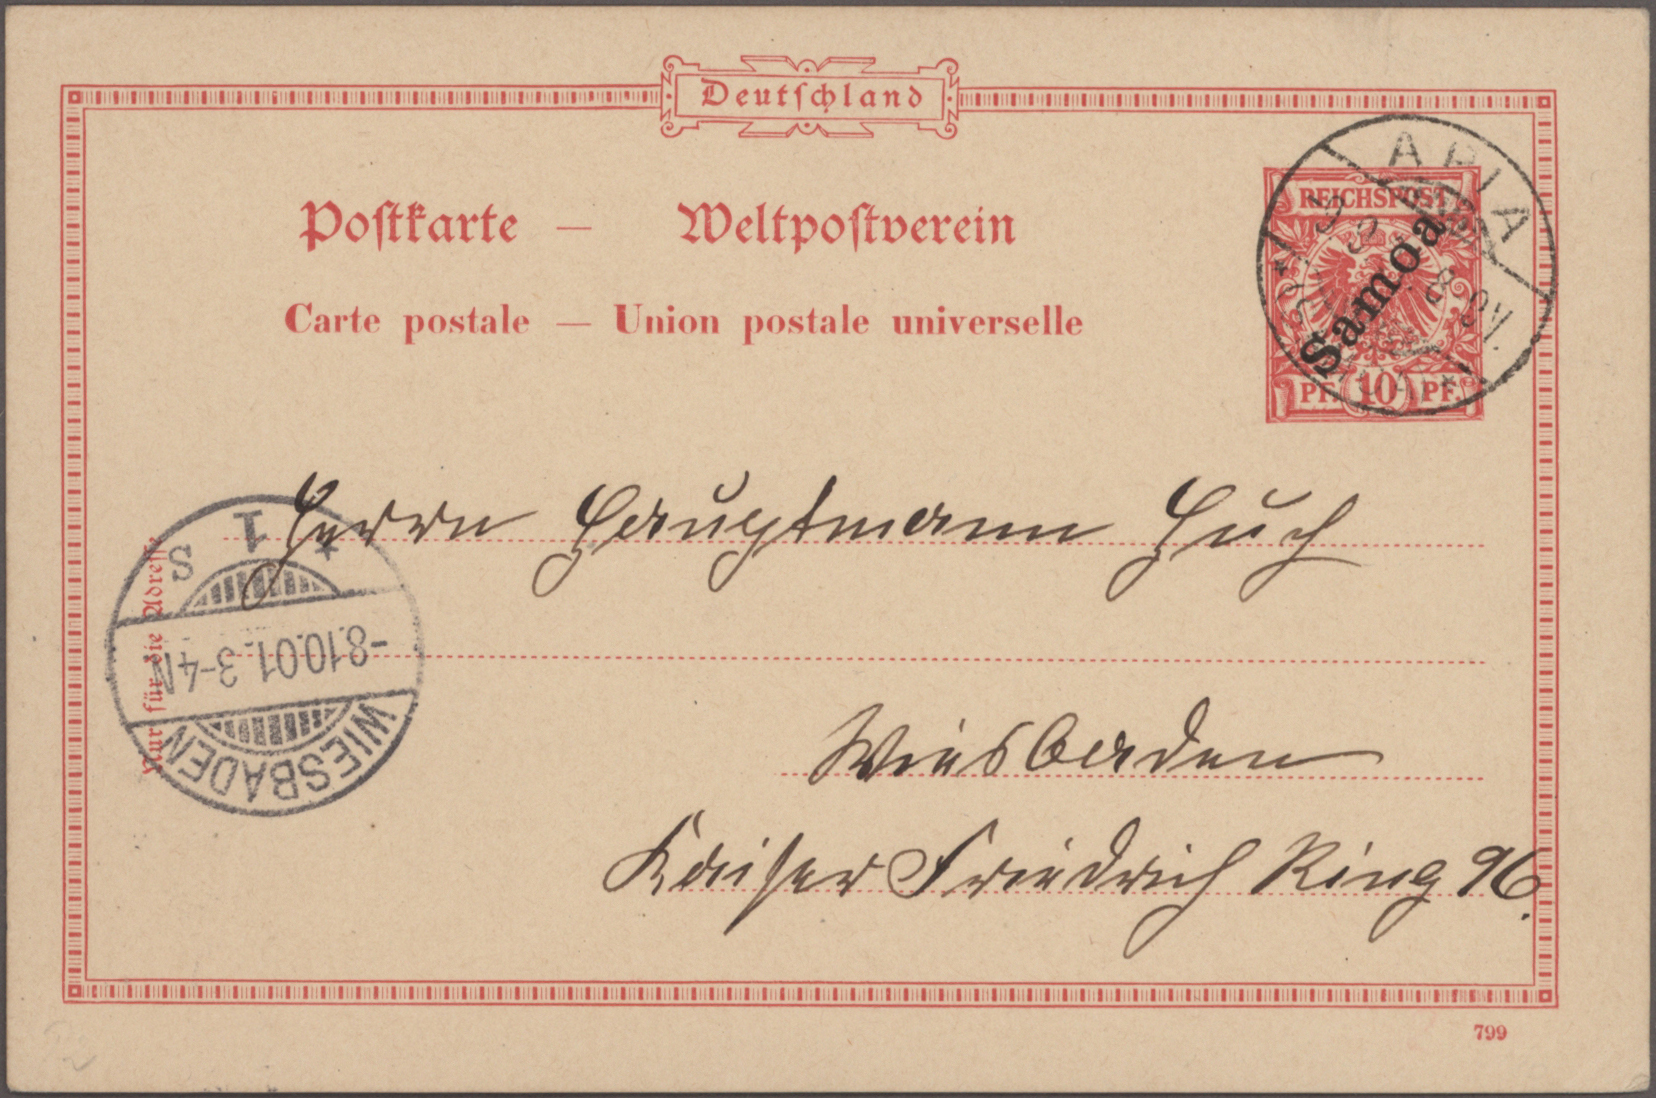 Deutschland
Postkarte — Weltpostverein
Carte postale — Union postale universelle
REICHSPOST
Samoa
PF. 10 PF.
APIA
Herrn Hauptmann Huch
Wiesbaden
Kaiser Friedrich Ring 96.
Nur für die Adresse
* 1 S
-8.10.01.3-4N
WIESBADEN
799